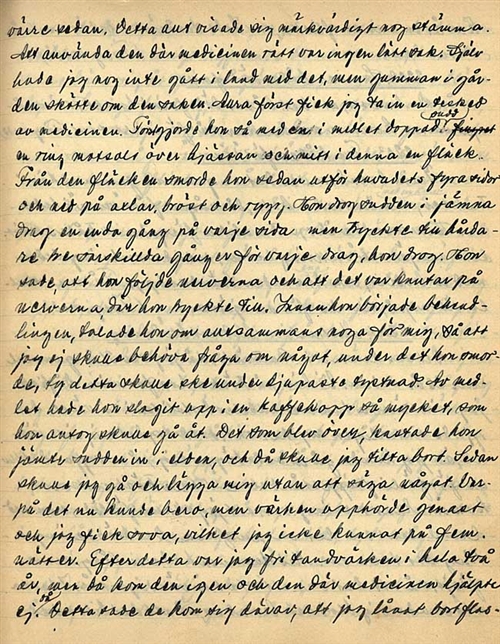 värre sedan. Detta allt visade sig märkvärdigt nog stämma.
Att använda den där medicinen rätt var ingen lätt sak. Själv
hade jag nog inte gått i land med det, men gumman i går-
den skötte om den saken. Allra först fick jag ta in en tesked
av medicinen. Förstgjorde hon så med en i medlet doppad sudd
en ring motsols över hjässan och mitt i denna en fläck.
Från den fläcken smorde hon sedan utför huvudets fyra sidor
och ned på axlar, bröst och rygg. Hon drog sudden i jämna
drag en enda gång på varje sida men tryckte till hårda-
re tre särskilda gånger för varje drag, hon drog. Hon
sade, att hon följde nerverna och att det var knutar på
nerverna, där hon tryckte till. Innan hon började behand-
lingen, talade hon om alltsammans noga för mig, så att
jag ej skulle behöva fråga om något, under det hon smor-
de, ty detta skulle ske under djupaste tystnad. Av med-
let hade hon slagit upp i en kaffekopp så mycket, som
hon antog skulle gå åt. Det som blev över, kastade hon
jämte sudden in i elden, och då skulle jag titta bort. Sedan
skulle jag gå och lägga mig utan att säga något. Var-
på det nu kunde bero, men värken upphörde genast
och jag fick sova, vilket jag icke kunnat på fem
nätter. Efter detta var jag fri tandvärken i hela två
år, men då kom den igen och den där medicinen hjälpte
ej. Detta sade de kom sig därav, att jag lånat bort flas-